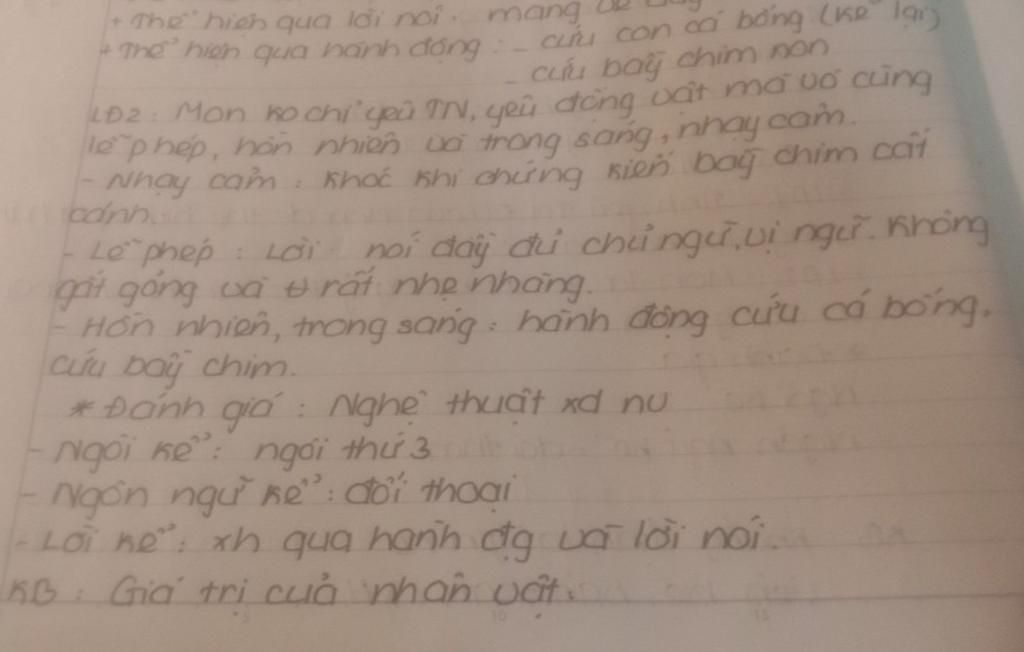 + Thể hiện qua lời nói: mang
+ Thể hiện qua hành động: - cứu con cá bống (kể lại)
- cứu bầy chim non
LĐ2: Mon ko chỉ yêu TN, yêu động vật mà vô cùng
lễ phép, hồn nhiên và trong sáng, nhạy cảm.
- Nhạy cảm: Khóc khi chứng kiến bầy chim cất
cánh.
- Lễ phép: Lời nói đầy đủ chủ ngữ, vị ngữ. Không
gắt gỏng và rất nhẹ nhàng.
- Hồn nhiên, trong sáng: hành động cứu cá bống,
cứu bầy chim.
* Đánh giá: Nghệ thuật xd nv
- Ngôi kể: ngôi thứ 3
- Ngôn ngữ kể: đối thoại
- Lời kể: xh qua hành đg và lời nói.
KB: Giá trị của nhân vật.